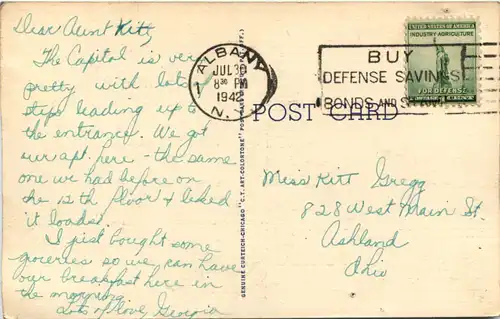 Dear Aunt Kitt,
The Capitol is very
pretty with lots
steps leading up to
the entrance. We got
our apt. here - the same
one we had before on
the 12th floor & liked
it loads.
I just bought some
groceries so we can have
our breakfast here in
the morning.
Lots of love, Georgia
ALBANY
JUL 30
8 30 PM
1942
N.Y.
BUY
DEFENSE SAVINGS
BONDS AND
UNITED STATES OF AMERICA
INDUSTRY AGRICULTURE
FOR DEFENSE
POST CARD
GENUINE CURTEICH-CHICAGO "C.T. ART-COLORTONE" POST CARD
Miss Kitt Gregg
828 West Main St.
Ashland
Ohio